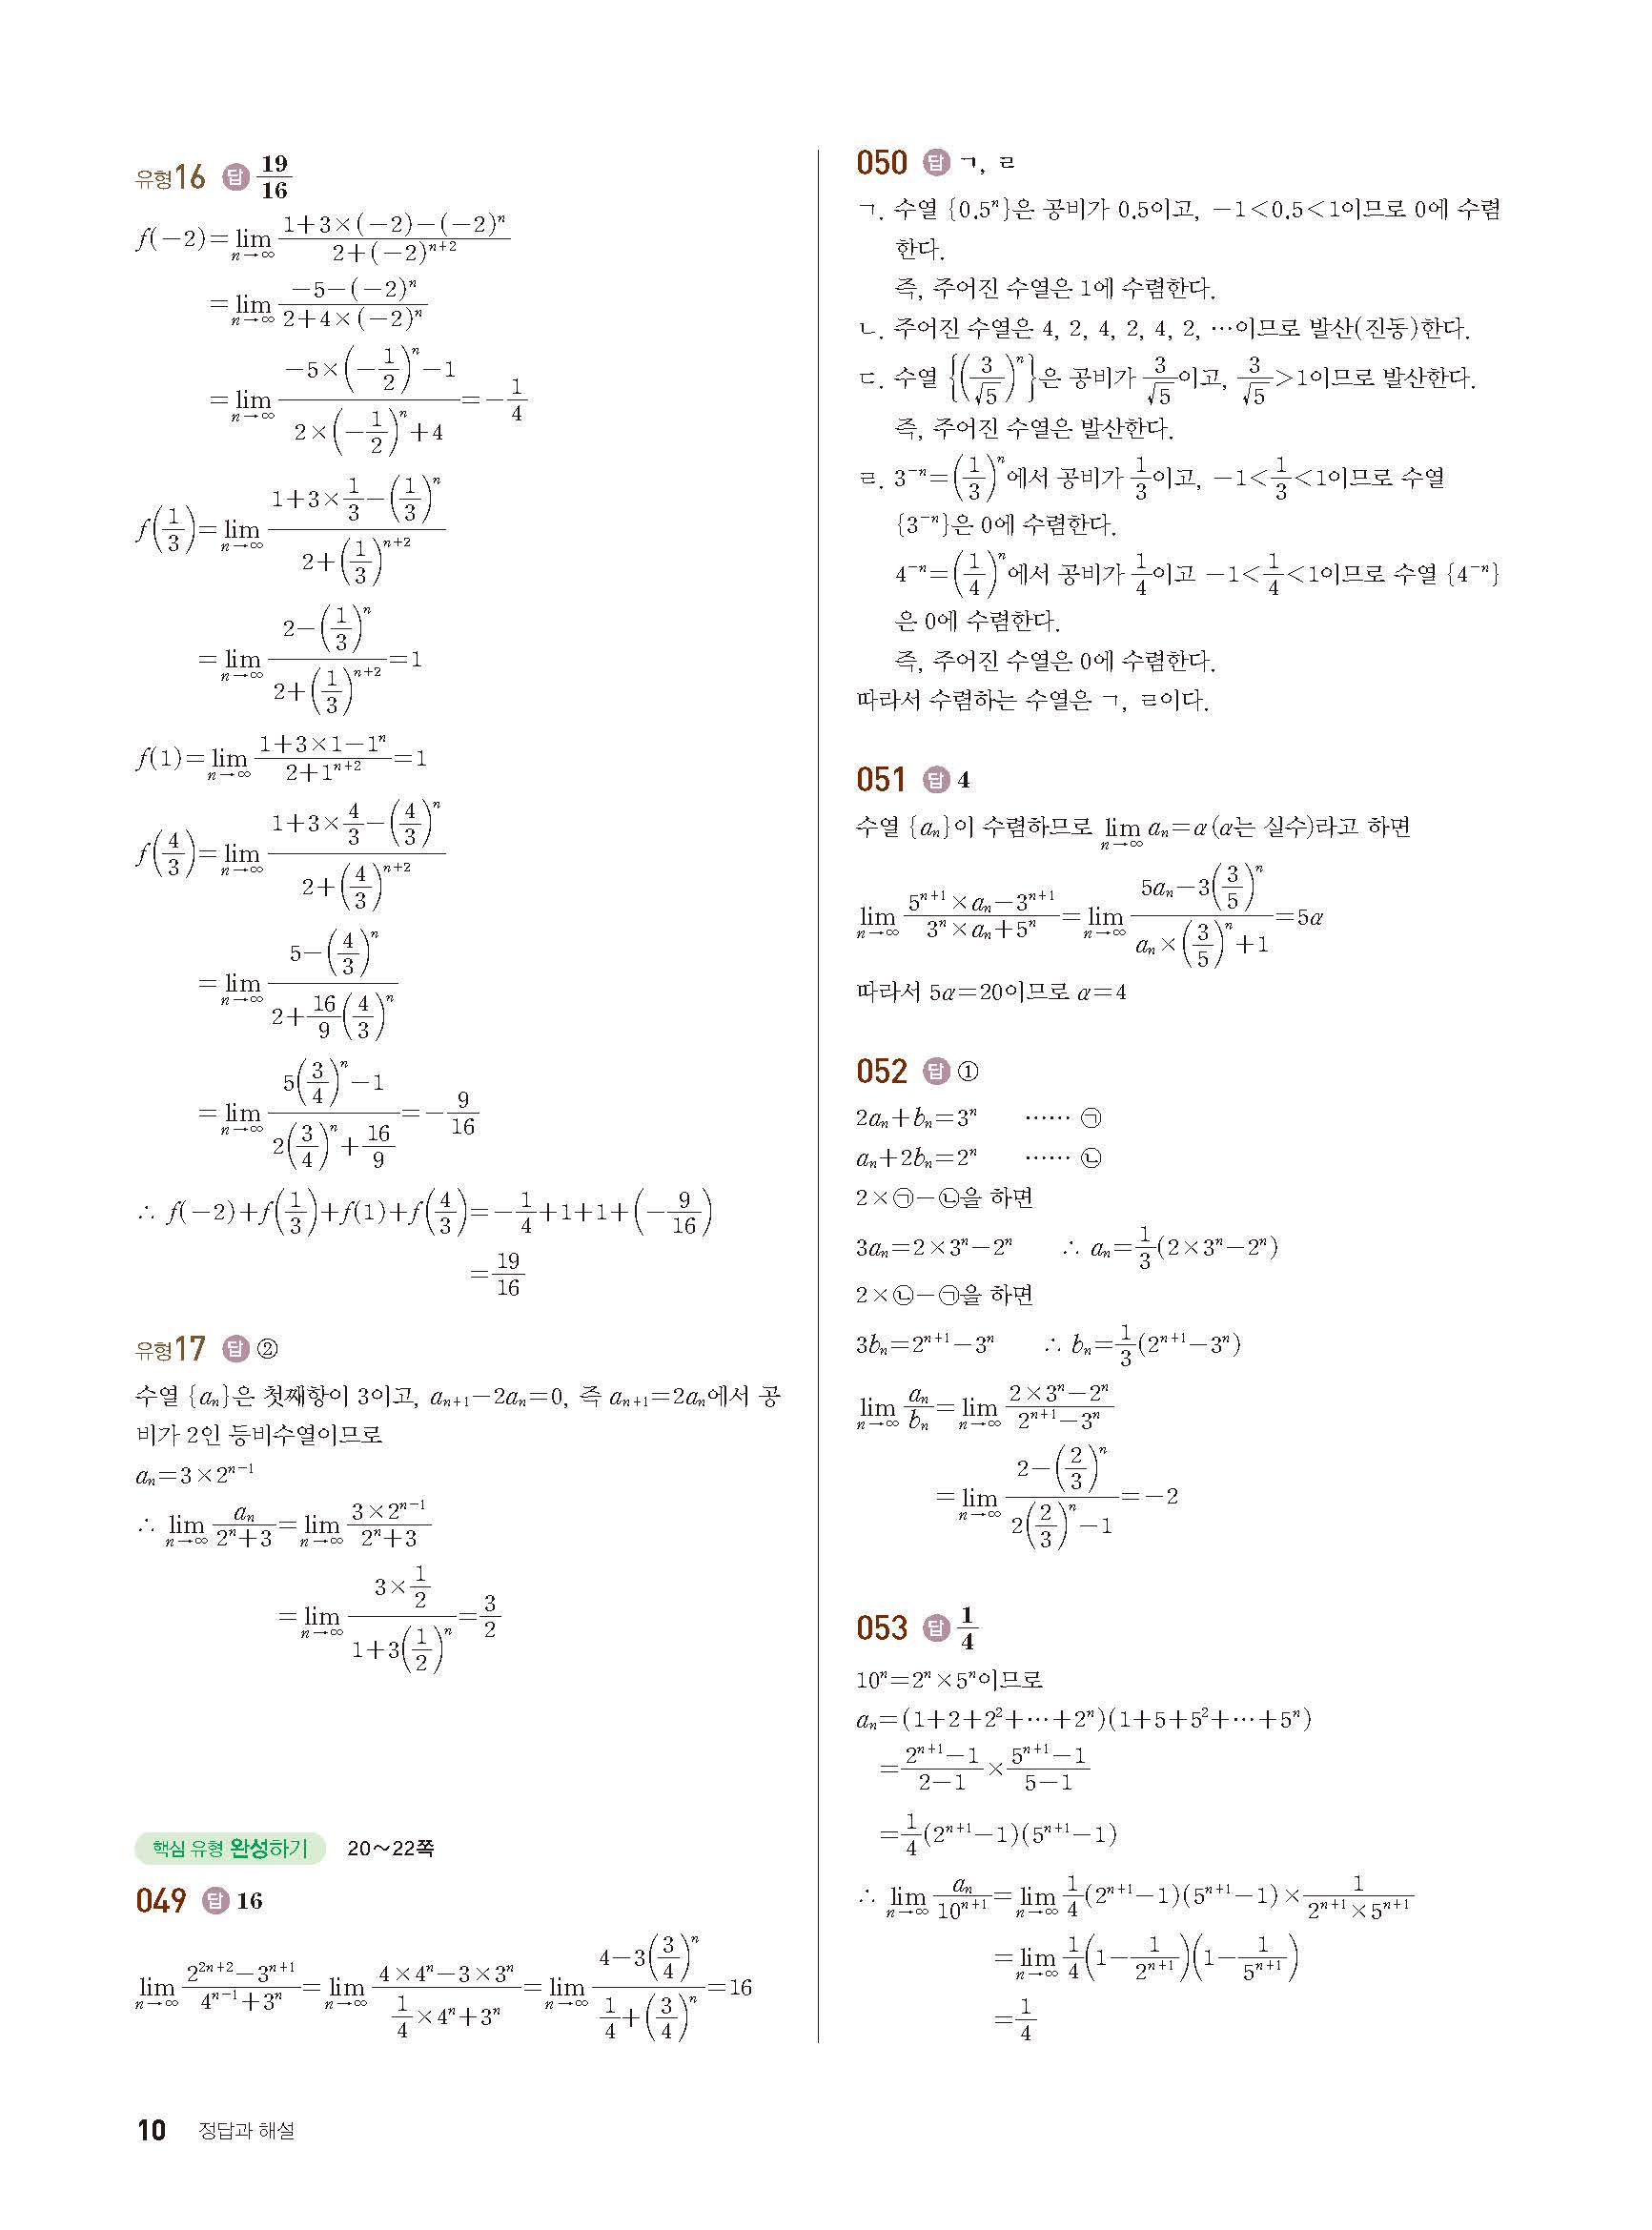 유형16 답 19/16
f(-2)=lim_{n→∞} (1+3×(-2)-(-2)^n)/(2+(-2)^{n+2})
=lim_{n→∞} (-5-(-2)^n)/(2+4×(-2)^n)
=lim_{n→∞} (-5×(-1/2)^n-1)/(2×(-1/2)^n+4)=-1/4
f(1/3)=lim_{n→∞} (1+3×1/3-(1/3)^n)/(2+(1/3)^{n+2})
=lim_{n→∞} (2-(1/3)^n)/(2+(1/3)^{n+2})=1
f(1)=lim_{n→∞} (1+3×1-1^n)/(2+1^{n+2})=1
f(4/3)=lim_{n→∞} (1+3×4/3-(4/3)^n)/(2+(4/3)^{n+2})
=lim_{n→∞} (5-(4/3)^n)/(2+16/9(4/3)^n)
=lim_{n→∞} (5(3/4)^n-1)/(2(3/4)^n+16/9)=-9/16
∴ f(-2)+f(1/3)+f(1)+f(4/3)=-1/4+1+1+(-9/16)
=19/16
유형17 답 ②
수열 {a_n}은 첫째항이 3이고, a_{n+1}-2a_n=0, 즉 a_{n+1}=2a_n에서 공
비가 2인 등비수열이므로
a_n=3×2^{n-1}
∴ lim_{n→∞} a_n/(2^n+3)=lim_{n→∞} (3×2^{n-1})/(2^n+3)
=lim_{n→∞} (3×1/2)/(1+3(1/2)^n)=3/2
핵심 유형 완성하기 20~22쪽
049 답 16
lim_{n→∞} (2^{2n+2}-3^{n+1})/(4^{n-1}+3^n)=lim_{n→∞} (4×4^n-3×3^n)/(1/4×4^n+3^n)=lim_{n→∞} (4-3(3/4)^n)/(1/4+(3/4)^n)=16
050 답 ㄱ, ㄹ
ㄱ. 수열 {0.5^n}은 공비가 0.5이고, -1<0.5<1이므로 0에 수렴
한다.
즉, 주어진 수열은 1에 수렴한다.
ㄴ. 주어진 수열은 4, 2, 4, 2, 4, 2, …이므로 발산(진동)한다.
ㄷ. 수열 {(3/√5)^n}은 공비가 3/√5이고, 3/√5>1이므로 발산한다.
즉, 주어진 수열은 발산한다.
ㄹ. 3^{-n}=(1/3)^n에서 공비가 1/3이고, -1<1/3<1이므로 수열
{3^{-n}}은 0에 수렴한다.
4^{-n}=(1/4)^n에서 공비가 1/4이고 -1<1/4<1이므로 수열 {4^{-n}}
은 0에 수렴한다.
즉, 주어진 수열은 0에 수렴한다.
따라서 수렴하는 수열은 ㄱ, ㄹ이다.
051 답 4
수열 {a_n}이 수렴하므로 lim_{n→∞} a_n=α(α는 실수)라고 하면
lim_{n→∞} (5^{n+1}×a_n-3^{n+1})/(3^n×a_n+5^n)=lim_{n→∞} (5a_n-3(3/5)^n)/(a_n×(3/5)^n+1)=5α
따라서 5α=20이므로 α=4
052 답 ①
2a_n+b_n=3^n …… ㉠
a_n+2b_n=2^n …… ㉡
2×㉠-㉡을 하면
3a_n=2×3^n-2^n ∴ a_n=1/3(2×3^n-2^n)
2×㉡-㉠을 하면
3b_n=2^{n+1}-3^n ∴ b_n=1/3(2^{n+1}-3^n)
lim_{n→∞} a_n/b_n=lim_{n→∞} (2×3^n-2^n)/(2^{n+1}-3^n)
=lim_{n→∞} (2-(2/3)^n)/(2(2/3)^n-1)=-2
053 답 1/4
10^n=2^n×5^n이므로
a_n=(1+2+2^2+…+2^n)(1+5+5^2+…+5^n)
=(2^{n+1}-1)/(2-1)×(5^{n+1}-1)/(5-1)
=1/4(2^{n+1}-1)(5^{n+1}-1)
∴ lim_{n→∞} a_n/10^{n+1}=lim_{n→∞} 1/4(2^{n+1}-1)(5^{n+1}-1)×1/(2^{n+1}×5^{n+1})
=lim_{n→∞} 1/4(1-1/2^{n+1})(1-1/5^{n+1})
=1/4
10 정답과 해설